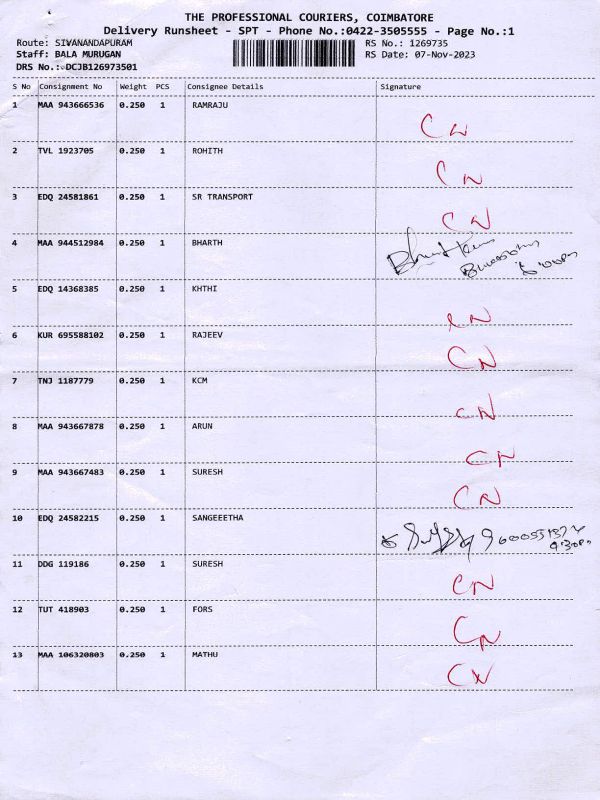 THE PROFESSIONAL COURIERS, COIMBATORE
Delivery Runsheet - SPT - Phone No.:0422-3505555 - Page No.:1
Route: SIVANANDAPURAM RS No.: 1269735
Staff: BALA MURUGAN RS Date: 07-Nov-2023
DRS No.:-DCJB126973501
S No Consignment No Weight PCS Consignee Details Signature
1 MAA 943666536 0.250 1 RAMRAJU
CN
2 TVL 1923705 0.250 1 ROHITH
CN
3 EDQ 24581861 0.250 1 SR TRANSPORT
CN
4 MAA 944512984 0.250 1 BHARTH
5 EDQ 14368385 0.250 1 KHTHI
CN
6 KUR 695588102 0.250 1 RAJEEV
CN
7 TNJ 1187779 0.250 1 KCM
CN
8 MAA 943667878 0.250 1 ARUN
CN
9 MAA 943667483 0.250 1 SURESH
CN
10 EDQ 24582215 0.250 1 SANGEEETHA
11 DDG 119186 0.250 1 SURESH
CN
12 TUT 418903 0.250 1 FORS
CN
13 MAA 106320803 0.250 1 MATHU
CN